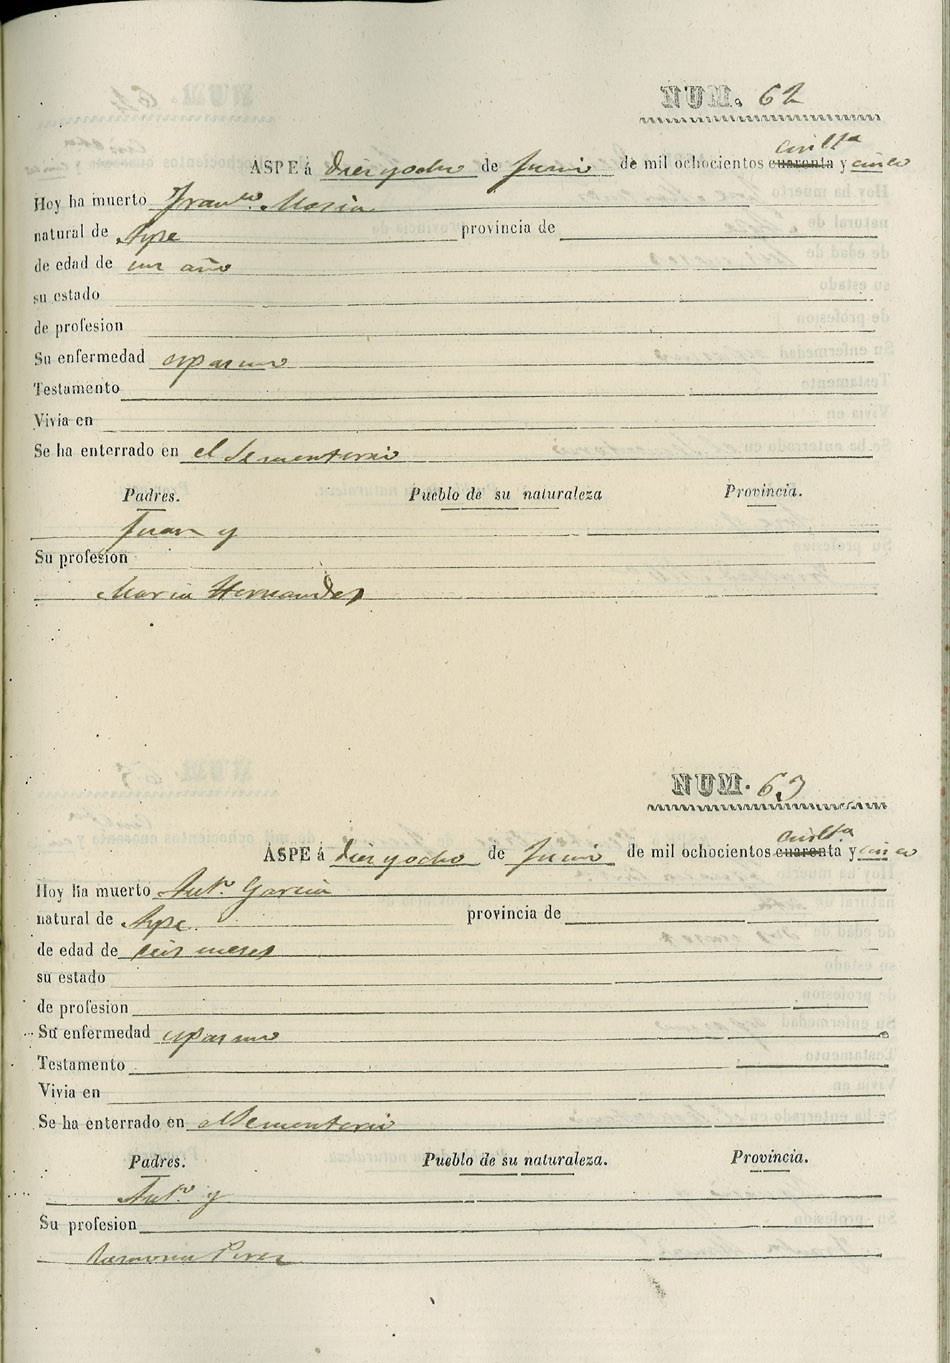 NUM. 62
ASPE á diez yocho de Junio de mil ochocientos cuarenta y cinco
Hoy ha muerto Fran.co Maria
natural de Aspe provincia de
de edad de un año
su estado
de profesion
Su enfermedad espasmo
Testamento
Vivia en
Se ha enterrado en el Sementerio
Padres. Pueblo de su naturaleza Provincia.
Juan y
Su profesion
Maria Hernandez
NUM. 63
ASPE á diez yocho de Junio de mil ochocientos cuarenta y cinco
Hoy ha muerto Ant.o Garcia
natural de Aspe provincia de
de edad de seis meses
su estado
de profesion
Su enfermedad espasmo
Testamento
Vivia en
Se ha enterrado en el Sementerio
Padres. Pueblo de su naturaleza. Provincia.
Ant.o y
Su profesion
Ramona Perez